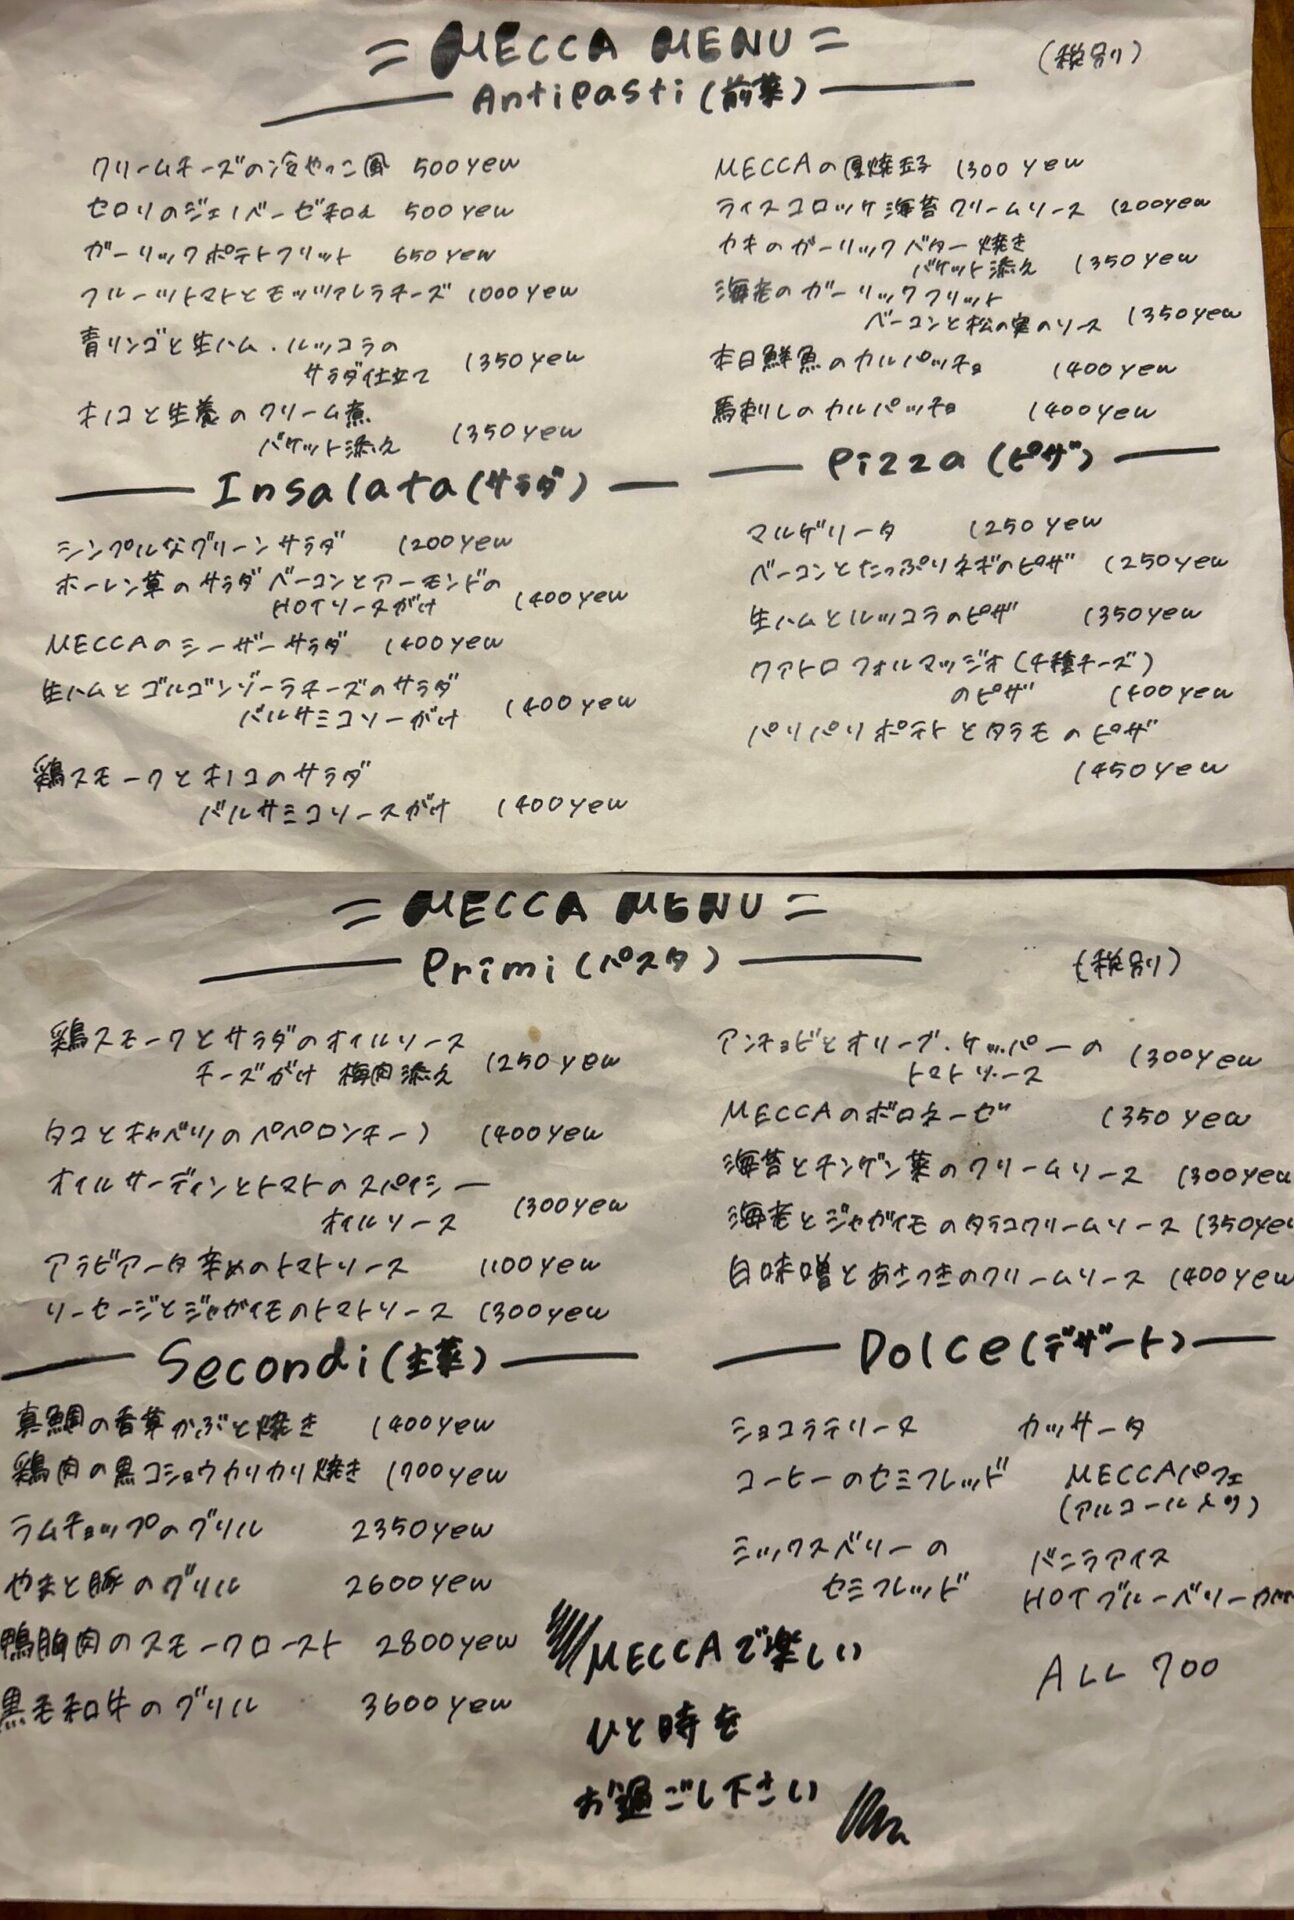 = MECCA MENU =
(税別)
Antipasti (前菜)
クリームチーズの冷やっこ風 500yen
セロリのジェノベーゼ和え 500yen
ガーリックポテトフリット 650yen
フルーツトマトとモッツァレラチーズ 1000yen
青リンゴと生ハム・ルッコラの
サラダ仕立て 1350yen
キノコと生麩のクリーム煮
バケット添え 1350yen
MECCAの厚焼玉子 1300yen
ライスコロッケ海苔クリームソース 1200yen
カキのガーリックバター焼き
バケット添え 1350yen
海老のガーリックフリット
ベーコンと松の実のソース 1350yen
本日鮮魚のカルパッチョ 1400yen
馬刺しのカルパッチョ 1400yen
Insalata (サラダ)
シンプルなグリーンサラダ 1200yen
ホーレン草のサラダ ベーコンとアーモンドの
HOTソースがけ 1400yen
MECCAのシーザーサラダ 1400yen
生ハムとゴルゴンゾーラチーズのサラダ
バルサミコソーがけ 1400yen
鶏スモークとキノコのサラダ
バルサミコソースがけ 1400yen
Pizza (ピザ)
マルゲリータ 1250yen
ベーコンとたっぷりネギのピザ 1250yen
生ハムとルッコラのピザ 1350yen
クァトロフォルマッジオ(4種チーズ)
のピザ 1400yen
パリパリポテトとタラモのピザ
1450yen
= MECCA MENU =
Primi (パスタ)
(税別)
鶏スモークとサラダのオイルソース
チーズがけ 梅肉添え 1250yen
タコとキャベツのペペロンチーノ 1400yen
オイルサーディンとトマトのスパイシー
オイルソース 1300yen
アラビアータ辛めのトマトソース 1100yen
ソーセージとジャガイモのトマトソース 1300yen
アンチョビとオリーブ・ケッパーの
トマトソース 1300yen
MECCAのボロネーゼ 1350yen
海苔とチンゲン菜のクリームソース 1300yen
海老とジャガイモのタラコクリームソース 1350yen
白味噌とあさつきのクリームソース 1400yen
Secondi (主菜)
真鯛の香草かぶと焼き 1400yen
鶏肉の黒コショウカリカリ焼き 1700yen
ラムチョップのグリル 2350yen
やまと豚のグリル 2600yen
鴨胸肉のスモークロースト 2800yen
黒毛和牛のグリル 3600yen
Dolce (デザート)
ショコラテリーヌ
カッサータ
コーヒーのセミフレッド
MECCAパフェ
(アルコール入り)
ミックスベリーの
セミフレッド
バニラアイス
HOTブルーベリー
ALL 700
MECCAで楽しい
ひと時を
お過ごし下さい